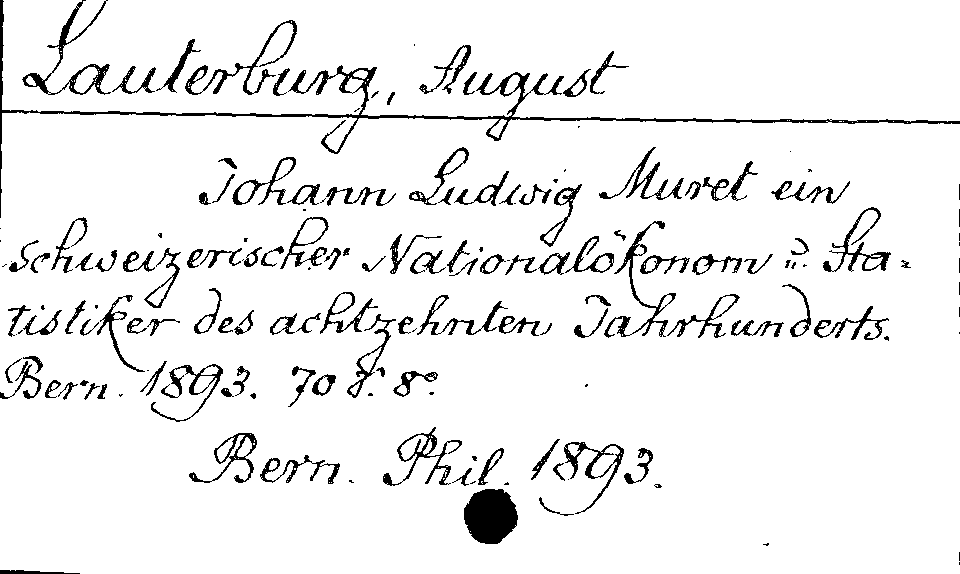 Lauterburg, August
Johann Ludwig Muret ein
schweizerischer Nationalökonom u. Sta-
tistiker des achtzehnten Jahrhunderts.
Bern. 1893. 70 S. 8°.
Bern. Phil. 1893.